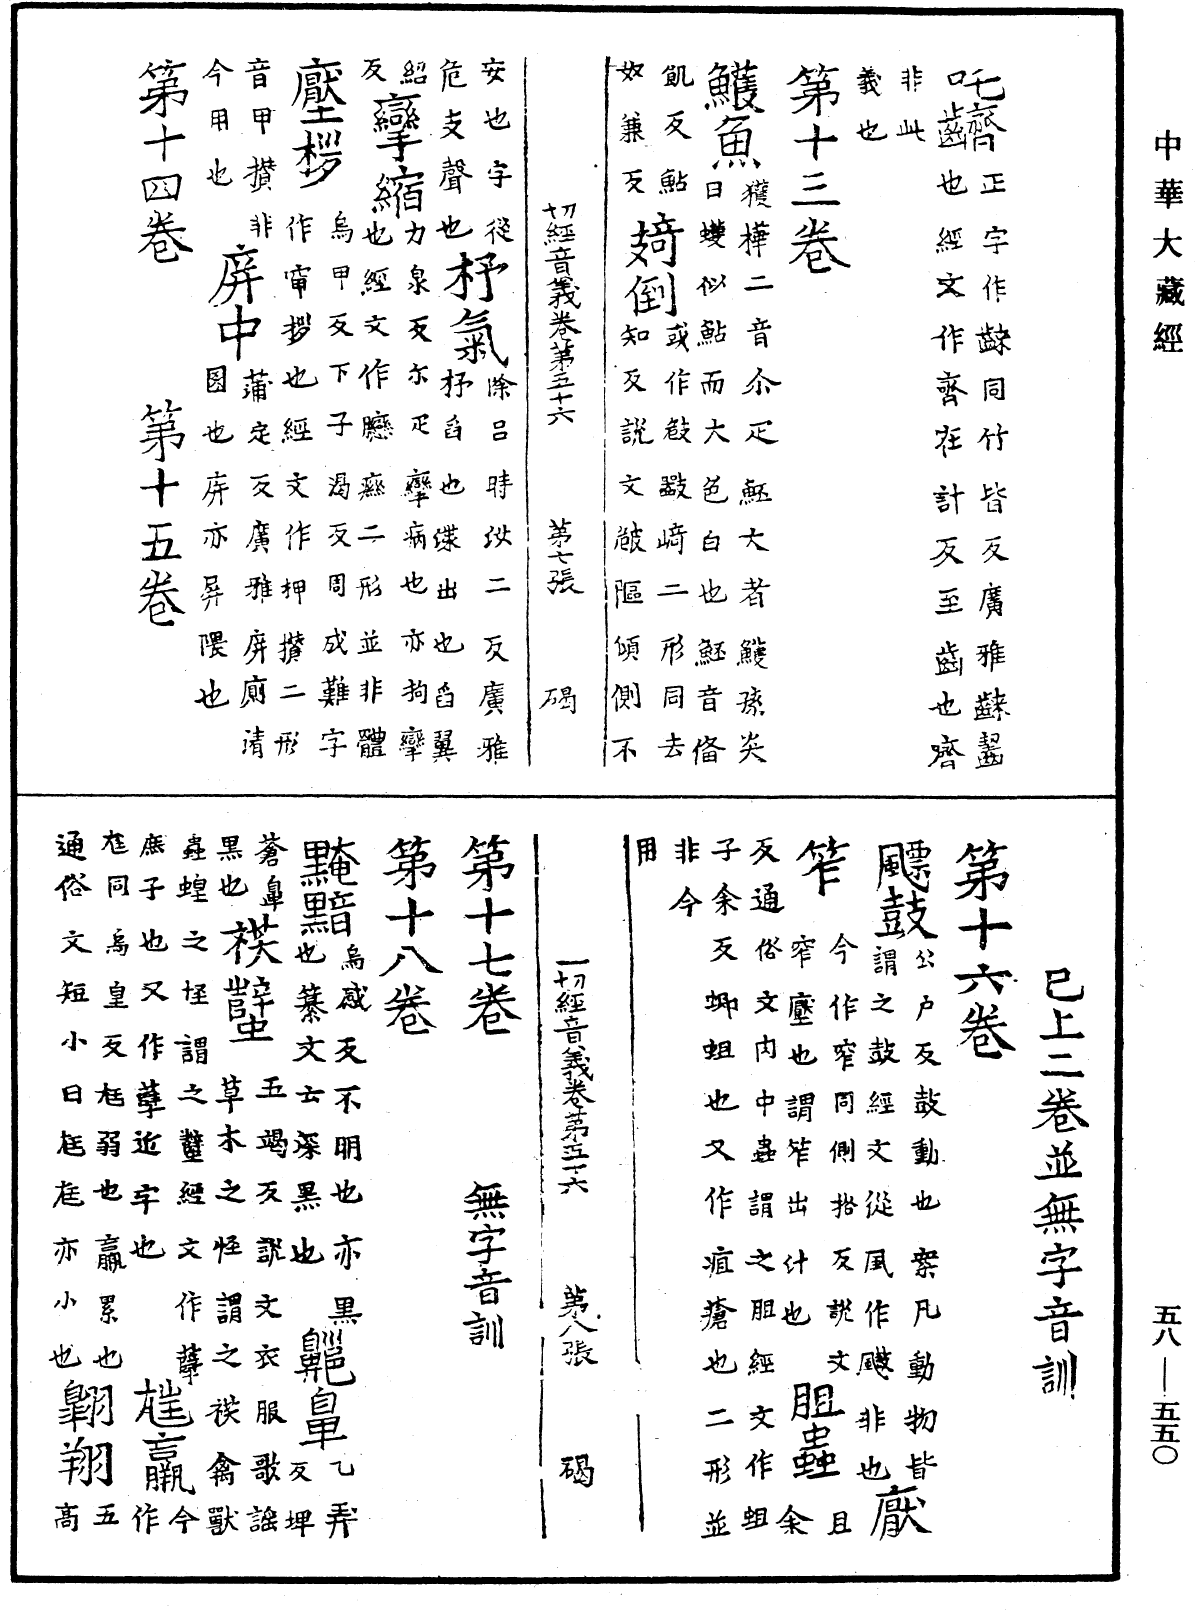 中華大藏經
吒嚌 正字作齰同竹皆反廣雅齰齧
也經文作齊在計反至齒也嚌
非此
義也
第十三卷
鱯魚 獲樺二音尒疋魾大者鱯孫炎
曰鱯似鮎而大色白也魾音備
飢反鮎
奴兼反
攲倒 或作敧㩻崎二形同去
知反說文㩻䧢傾側不
切經音義卷第五十六 第七張 碣
安也字從
危支聲也
抒氣 除呂時汝二反廣雅
抒舀也渫出也舀翼
紹
反
攣縮 力泉反尒疋攣病也亦拘攣
也經文作癴㾾二形並非體
壓拶 烏甲反下子渴反周成難字
作窄拶也經文作押攢二形
音甲攢非
今用也
屏中 蒲定反廣雅屏廁清
圂也屏亦屏隈也
第十四卷 第十五卷
已上二卷並無字音訓
第十六卷
飃鼓 公戶反鼓動也案凡動物皆
謂之鼓經文從風作颷非也
厭
笮 今作窄同側格反說文
窄壓也謂笮出汁也
胆蟲 且
余
反通俗文肉中蟲謂之胆經文作蛆
子余反蝍蛆也又作疽瘡也二形並
非今
用
一切經音義卷第五十六 第八張 碣
第十七卷 無字音訓
第十八卷
黤黯 烏感反不明也亦黑
也纂文云深黑也
鼆鼻 乙弄
反埤
蒼鼻
黑也
䄏蠥 五竭反說文衣服歌謠
草木之怪謂之䄏禽獸
蟲蝗之怪謂之蠥經文作孽
庶子也又作孽近字也
尪羸 今
作
尪同烏皇反尪弱也羸累也
通俗文短小曰尪尪亦小也
翺翔 五
高
五八—五五〇